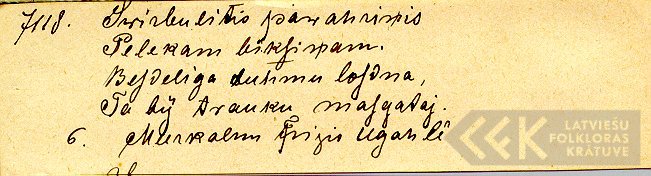 7118. Swirbulitis pawahrinis
Pelekam bikſiņam.
Beſdeliga duhmu loſdna,
Ta bij trauku maſgataj.
6. Murkalnu Frizis Ugahlē
LATVIEŠU
FOLKLORAS
KRĀTUVE